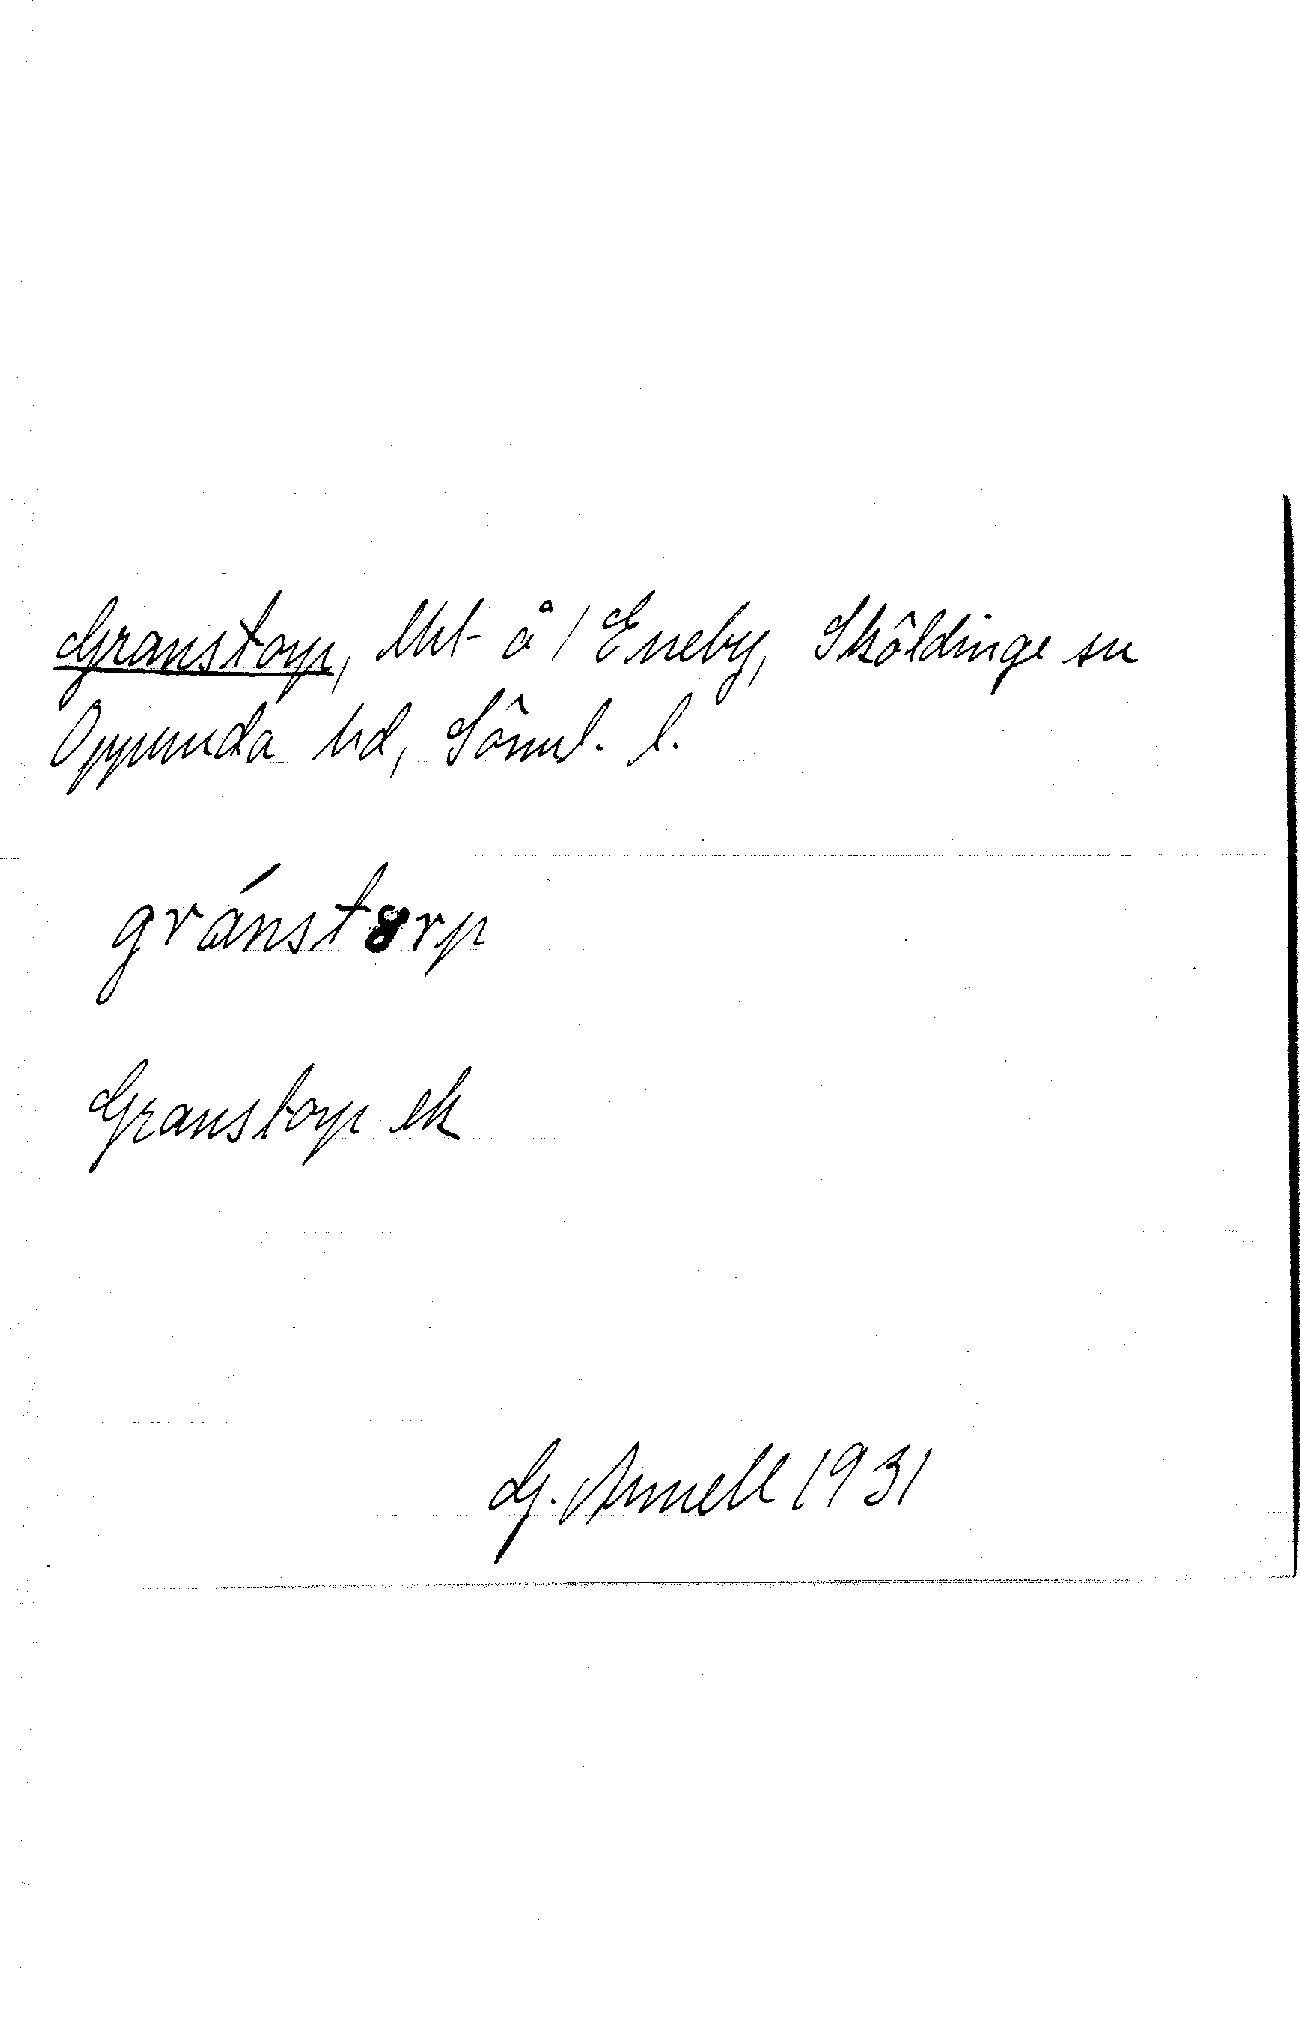 Granstorp, lht å 1 Eneby, Sköldinge sn
Oppunda hd, Söml. l.
gránstorp
Granstorp ek
G. Annell 1931